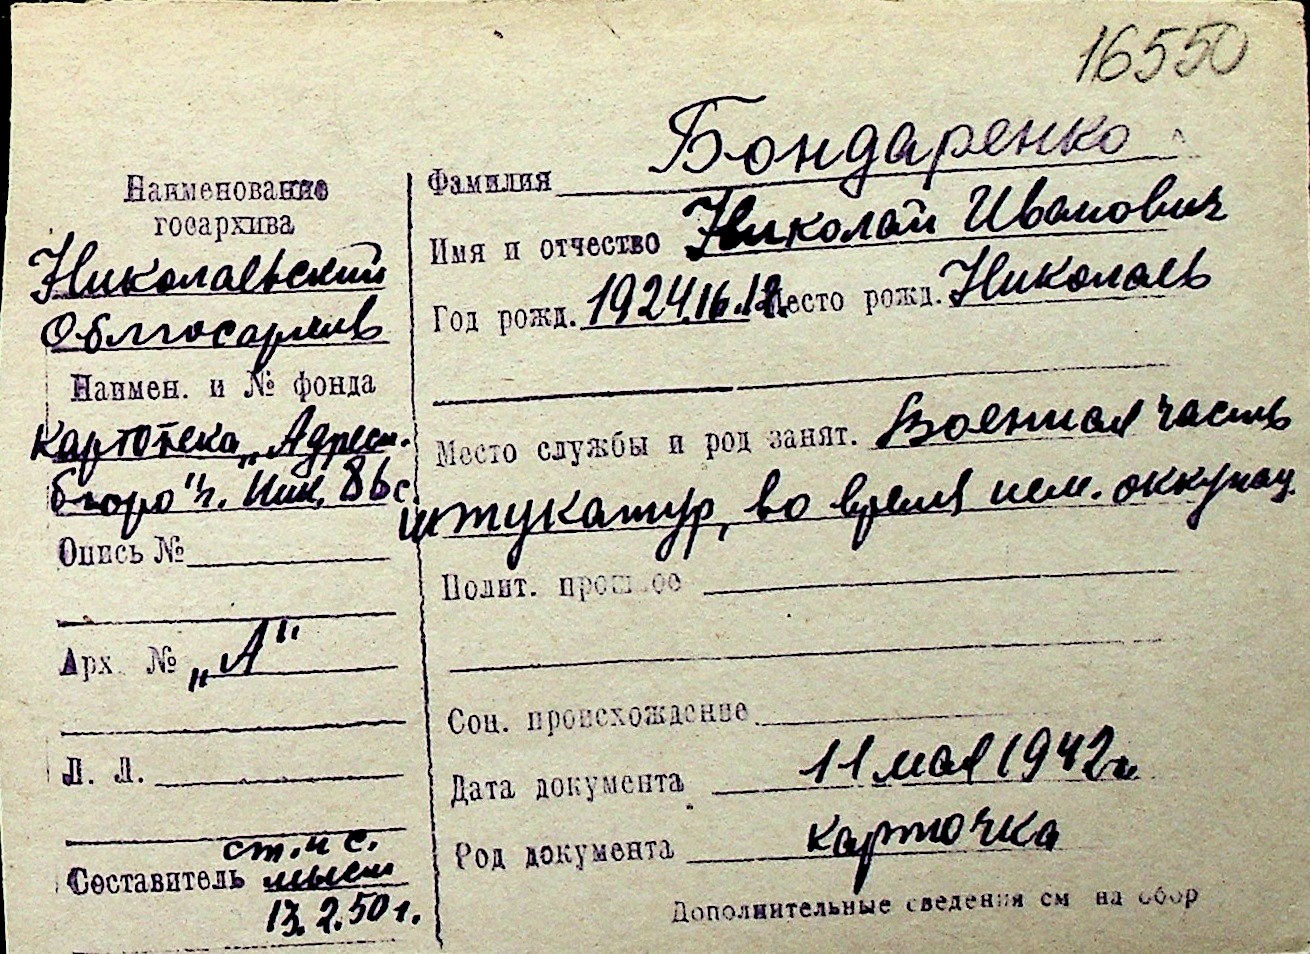 16550
Наименование
госархива
Николаевский
Облгосархив
Наимен. и № фонда
Картотека „Адресн.
бюро" г. Ник. 86 с
Опись №
Арх. № „А"
Л. Л.
Составитель ст. н с.
13.2.50 г.
Фамилия Бондаренко
Имя и отчество Николай Иванович
Год рожд. 1924.16.12. Место рожд. Николаев
Место службы и род занят. Военная часть
штукатур, во время нем. оккупац.
Полит. прошлое
Соц. происхождение
Дата документа 11 мая 1942 г.
Род документа карточка
Дополнительные сведения см на обор